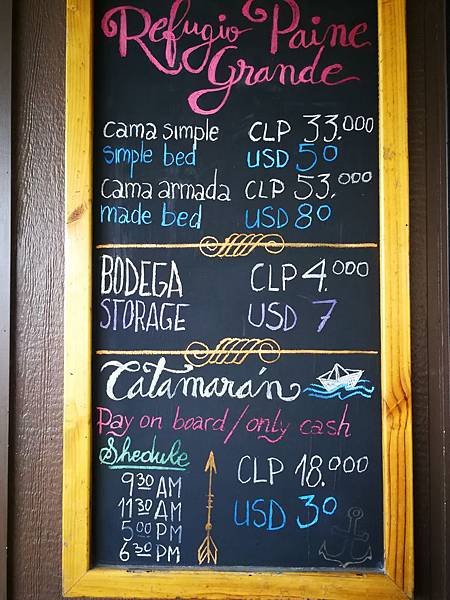 Refugio Paine
Grande
cama simple CLP 33.000
simple bed USD 50
cama armada CLP 53.000
made bed USD 80
BODEGA CLP 4.000
STORAGE USD 7
Catamarán
Pay on board/only cash
Shedule
CLP 18.000
USD 30
9:30 AM
11:30 AM
5:00 PM
6:30 PM